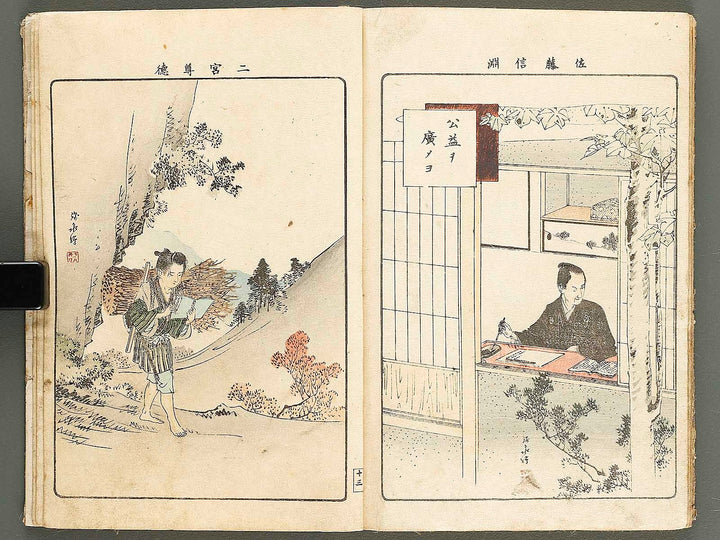 佐藤信淵
公益ヲ
廣メヨ
二宮尊德
十三